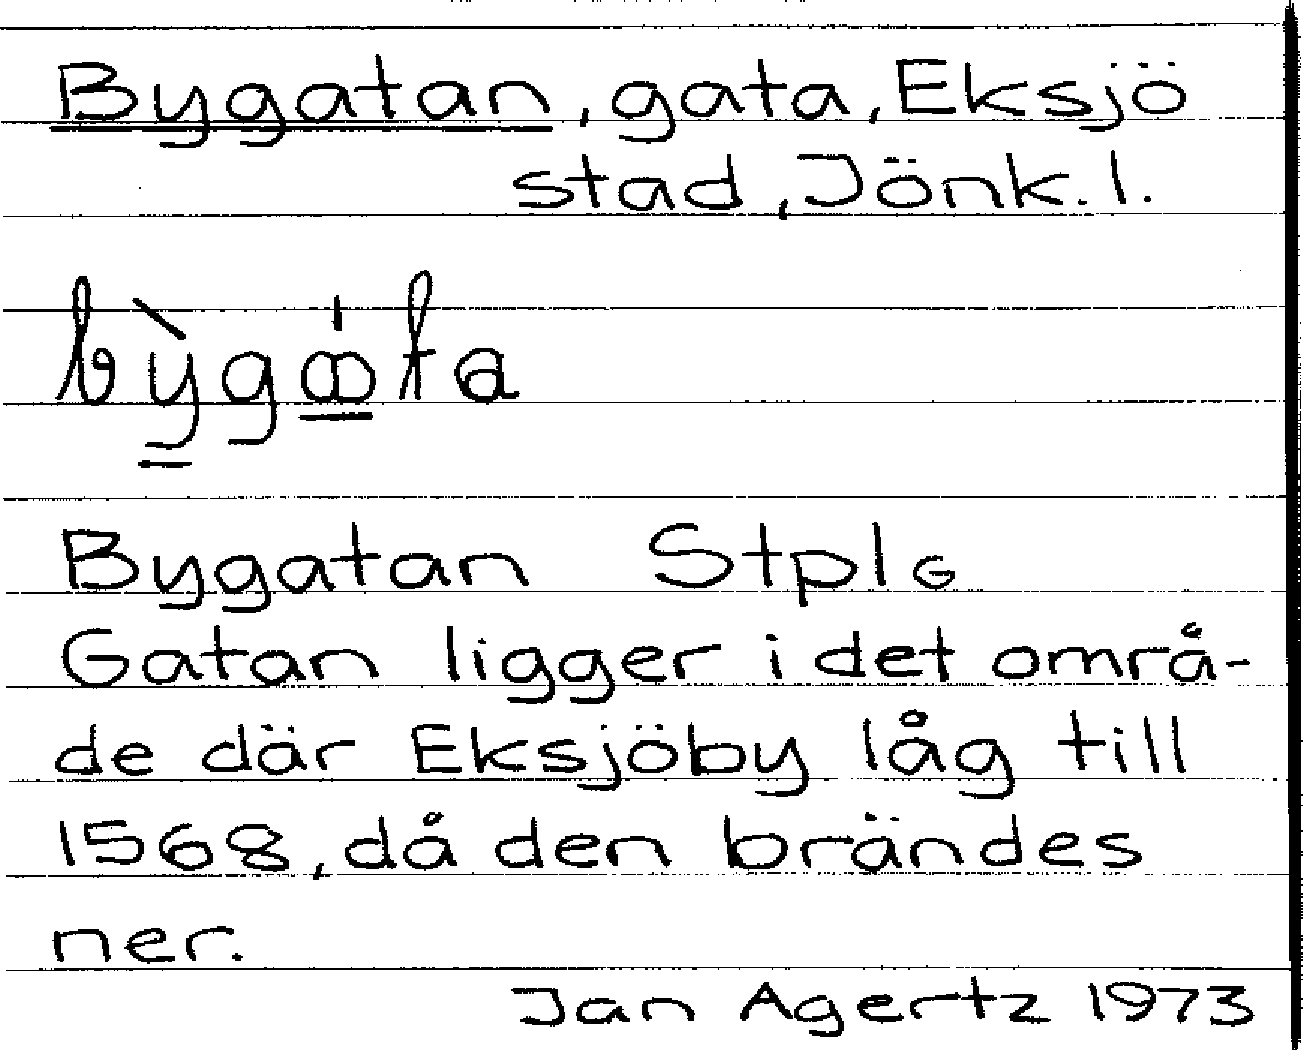 Bygatan, gata, Eksjö
stad, Jönk. l.
Bygatan Stplg
Gatan ligger i det områ-
de där Eksjöby låg till
1568, då den brändes
ner.
Jan Agertz 1973